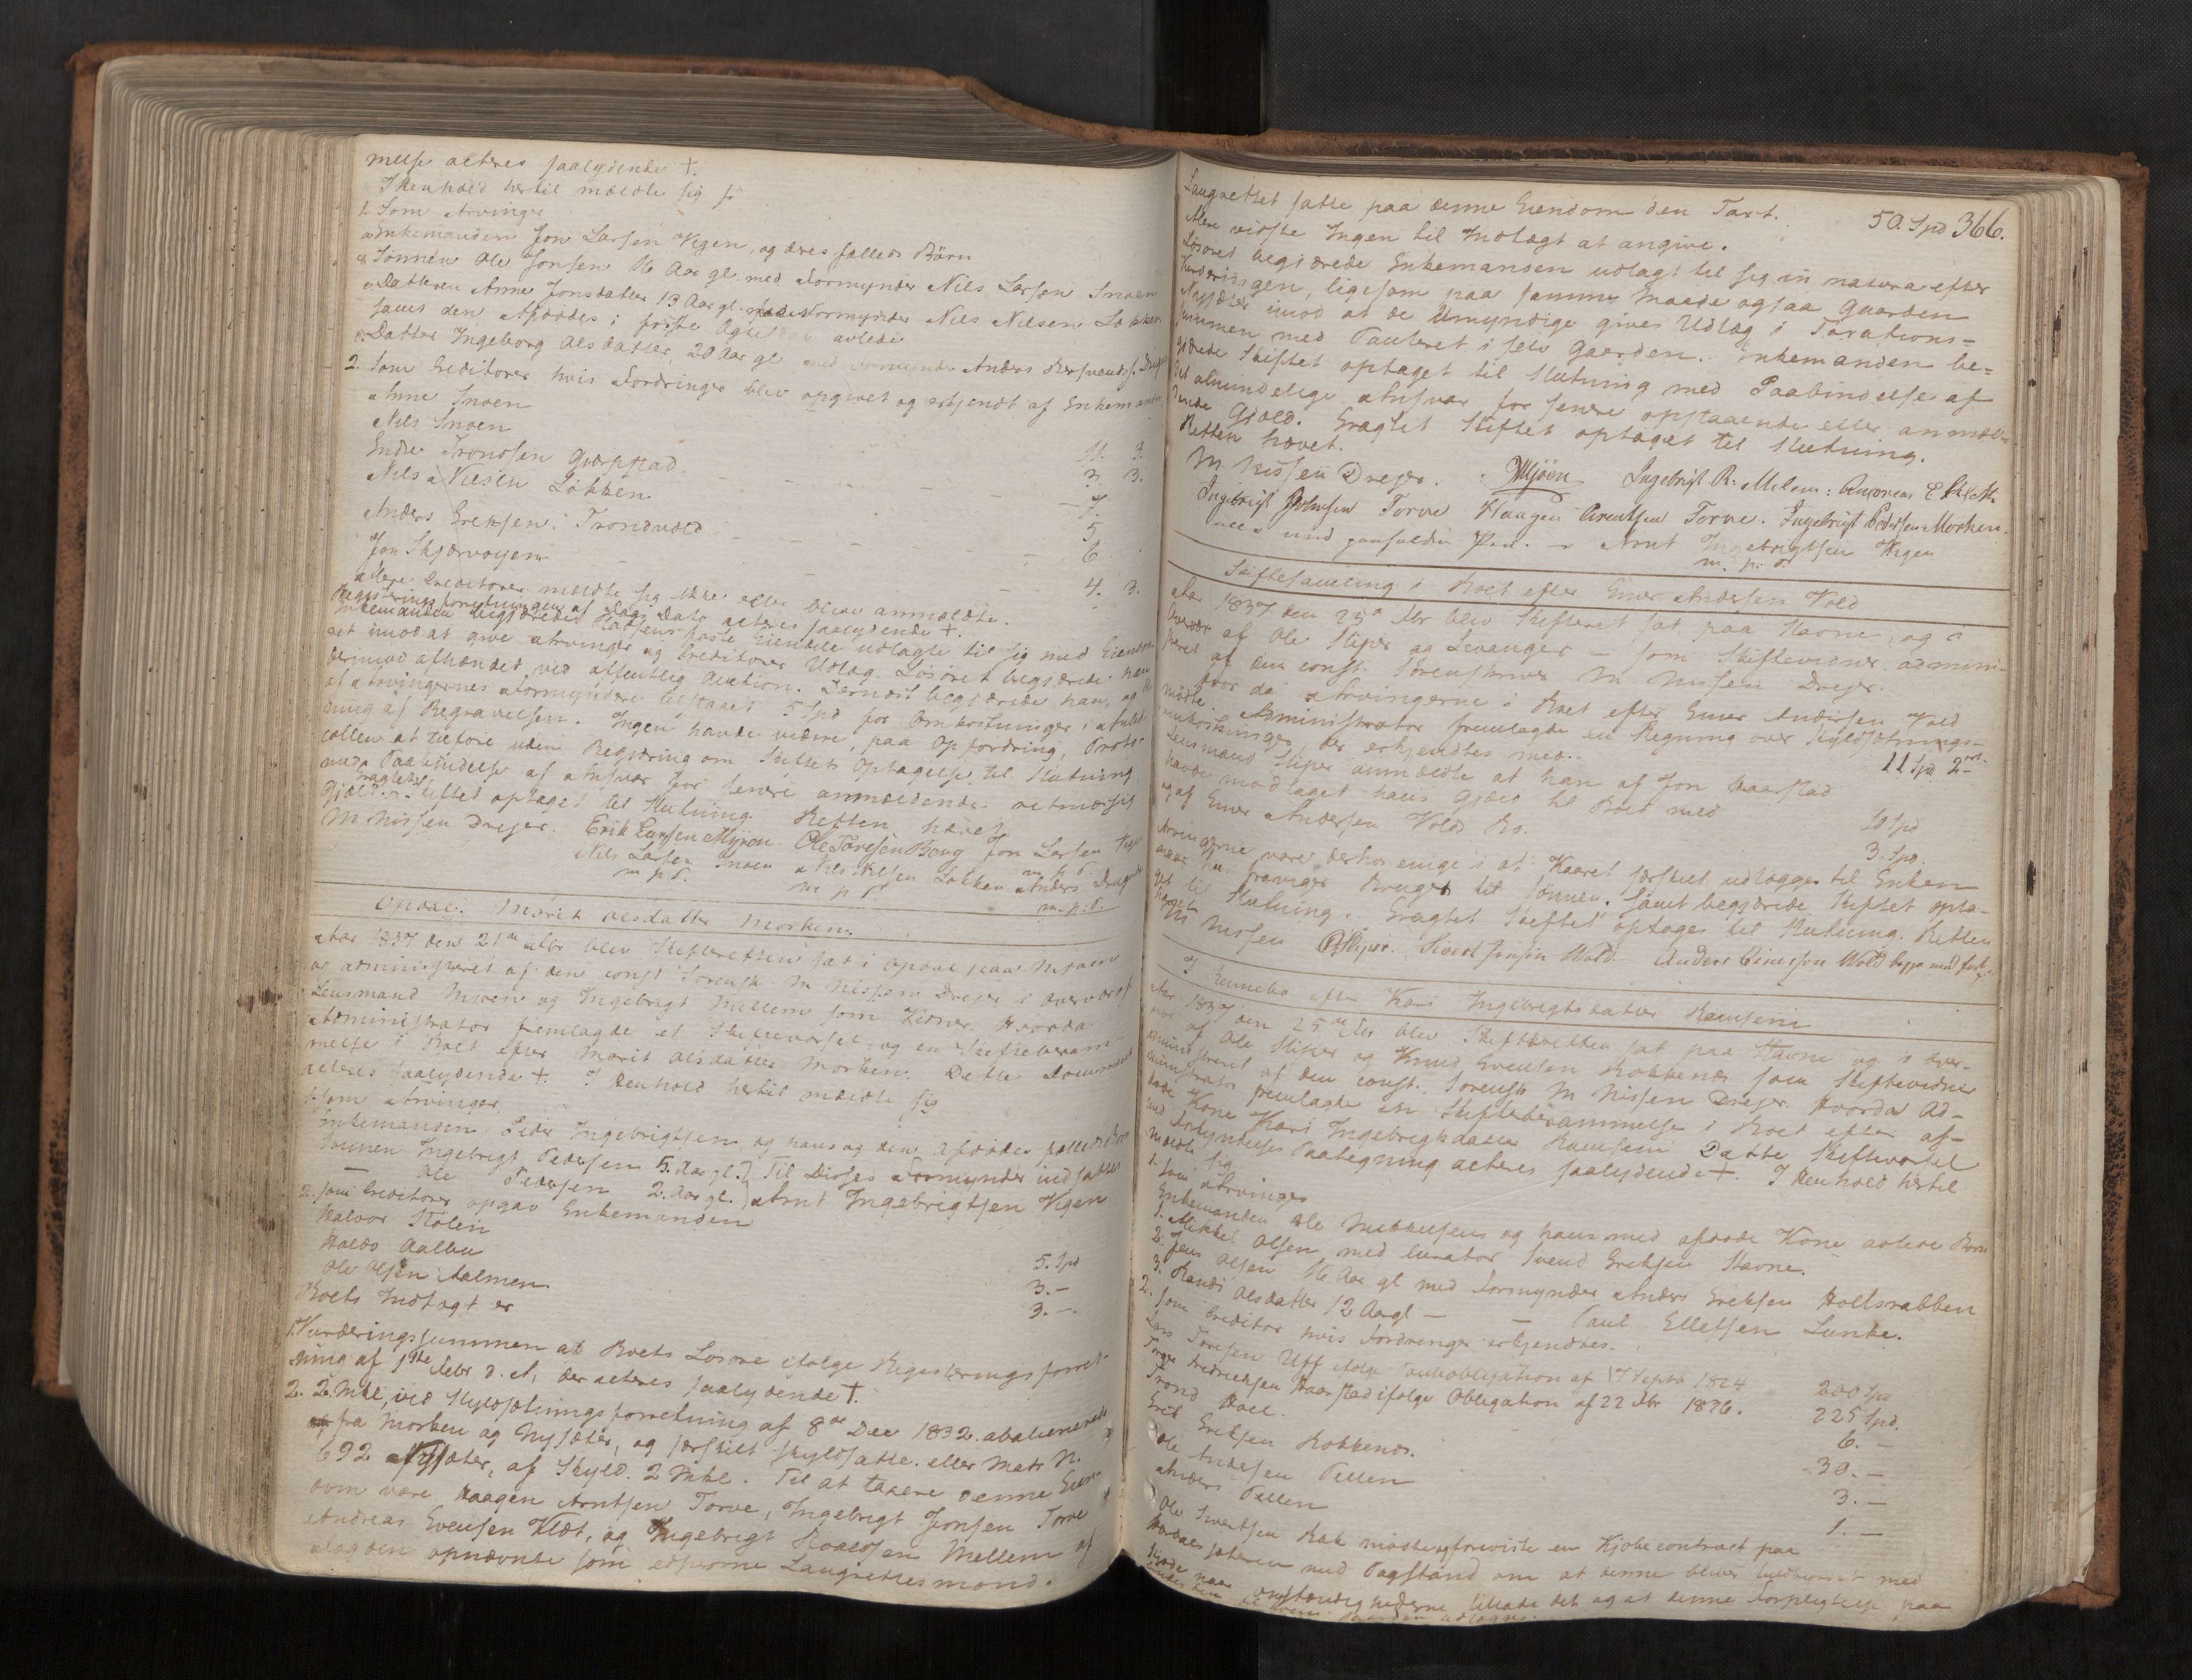 melse acteres saalydende +.
I Henhold hertil mældte sig
1. Som Arvinger
a. Enkemanden Jon Larsen Vigen, og deres fælleds Børn
b. Sønnen Ole Jonsen 16 Aar gl. med Formynder Nils Larsen Snoen
c. Datteren Anne Jonsdatter 13 Aar gl. Formynder Nils Nilsen Løkken
samt den Afdødes i første Ægteskab avlede
d. Datter Ingeborg Olsdatter, 20 Aar gl med Formynder Anders
2. Som Creditorer hvis Fordringer blev opgivet og erkjendt af Enkemanden
Anne Snoen 11. 3.
Nils Snoen 3. 3.
Endre Trondsen Gjerpstad. 7.
Nils Nilsen Løkken 5.
Anders Ereksen Trondvold 6
Jon Skjørvøyen 4. 3.
Flere Creditorer meldte sig ikke eller bleve anmældte.
Registreringsforretningen af Dags Dato acteres saalydende +.
Enkemanden begjærede faste Eiendele udlagte til sig med Eiendoms
ret imod at give Arvinger og Creditorer Udlæg. Løsøret begjærede han
derimod afhændet ved offentlig Auction. Dernæst begjærede han, og
af Arvingernes Formyndere bestaaet 5 Spd for Omkostninger i Anled-
ning af Begravelsen. Ingen havde videre, paa Opfordring, Proto-
collen at tilføie uden Begjæring om Skiftets Optagelse til Slutning
med Paabindelse af Ansvar for senere anmeldende
Gjæld. Eragtet Skiftet optaget til Slutning. Retten hævet
M Nissen Dreyer. Erik Larsen Mjøen. Ole Toresen Borg Jon Larsen
Nils Larsen Snoen Nils Nilsen Løkken Anders
m p P. m p P. m. p. P.
Opdal. Marit Olsdatter Morken.
Aar 1837 den 21de blev Skifteretten sat i Opdal paa Mjøen
og administreret af den const. Sorensk. M Nissen Dreyer i Overvær af
Lensmand Mjøen og Ingebrigt Mellem som Vidner. Hvorda
Administrator fremlagde et Skiftevarsel og en Skifteberam-
melse i Boet efter Marit Olsdatter Morken. Dette Document
acteres saalydende +. I Henhold hertil mældte sig
1. Som Arvinger
Enkemanden Peder Ingebrigtsen og hans og den Afdødes fælleds Børn
Sønnen Ingebrigt Pedersen 5. Aar gl. } Til Disses Formynder indsattes
— Ole Pedersen 2. Aar gl. } Arnt Ingebrigtsen Vigen
2. Som Creditorer opgav Enkemanden
Halvor Stølen 5. Spd
Haldo Aalbu 3.-
Ole Olsen Aalmen. 3.-
Boets Indtægt er
1. Vurderingssummen af Boets Løsøre ifølge Registreringsforret-
ning af 1ste d. A., der acteres saalydende +.
2. 2 Mkl, ved Skyldsætningsforretning af 8de Dec 1832. abalienerede
fra Morken og Nysæter, og særskilt skyldsatte. eller Matr N.
692 Nysæter, af Skyld. 2 Mkl. Til at taxere denne Eien-
dom vare Haagen Arntsen Torve, Ingebrigt Jonsen Torve
Andreas Evensen Klæt, og Ingebrigt Roaldsen Mellem af
opnævnte som edsvorne Laugrettesmænd.
366.
Laugrettet satte paa denne Eiendom den Taxt. 50. Spd
Flere vidste Ingen til Indtægt at angive.
Løsøret begjærede Enkemanden udlagt til sig in natura efter
Vurderingen, ligesom paa samme Maade ogsaa Gaarden
Nysæter imod at de Umyndige gives Udlæg i Taxations-
summen med Panteret i selv Gaarden. Enkemanden be-
gjærede Skiftet optaget til Slutning med Paabindelse af
det almindelige Ansvar for senere opstaaende eller anmel-
dende Gjæld. Eragtet Skiftet optaget til Slutning.
Retten hævet.
M Nissen Dreyer. Mjøen Ingebrigt R. Mellem: Andreas E Klæt
Ingebrigt Johnsen Torve Haagen Arentsen Torve. Ingebrigt Pedersen Morken.
med paaholden Pen. Arnt Ingebrigtsen Vigen
m. p. P.
Skiftesamling i Boet efter Einer Andersen Vold
Aar 1837 den 25de blev Skifteret sat paa Stavne, og i
Overvær af Ole Skiper og Levanger som Skiftevidner admini-
streret af den const. Sorenskriver M Nissen Dreyer.
Hvor da Arvingerne i Boet efter Einer Andersen Vold
mødte. Administrator fremlagde en Regning over Skyldsætnings-
omkostninger, der erkjendtes med. 11 Spd 2 ort
Lensmand Skiper anmældte at han af Jon Haarstad
havde modtaget hans Gjæld til Boet med 10 Spd
og af Einer Andersen Volds Bo. 3. Spd.
Arvingerne vare derhos enige i at Kaaret særskilt udlægges til Enken
naar hun fraviger Bruget til Sønnen. Samt begjærede Skiftet opta-
get til Slutning. Eragtet Skiftet optages til Slutning. Retten
hævet.
M Nissen OSkiper. Sivert Jonsen Wold Anders Einersen Wold begge med
I Rennebo efter Kari Ingebrigtsdatter Ramsem
Aar 1837 den 25de blev Skifteretten sat paa Stavne og i Over-
vær af Ole Skiper og Knud Evensen Kokkenes som Skiftevidner
administreret af den const. Sorensk M Nissen Dreyer. Hvorda Ad-
ministrator fremlagde en Skifteberammelse i Boet efter af-
døde Kone Kari Ingebrigtsdatter Ramsem Dette Skiftevarsel
med Forkyndelses Paategning acteres saalydende +. I Henhold hertil
mældte sig
1. Som Arvinger
Enkemanden Ole Mikkelsen og hans med afdøde Kone avlede Børn
1. Mikkel Olsen, med Curator Svend Ereksen Stavne.
2. Jens Olsen 16 Aar gl med Formynder Anders Ereksen Holtsrabben
3. Randi Olsdatter 12 Aar gl — — Paul Ellefsen Lunke.
2. Som Creditor hvis Fordringer erkjendtes.
Lars Toresen Uff ifølge Panteobligation af 17 Septb 1824 200 Spd
Torger Fredriksen Haarstad ifølge Obligation af 22 1836. 225 Spd.
Trond Hoel. 6.-
Erik Ereksen Kokkenes. 30.-
Ole Andersen Pellen 3.-
Anders Pellen 1.-
Ole Sivertsen Rak mødte og foreviste en Kjøbecontract paa
sæteren med Paastand om at denne bliver med
omstændighederne tillade det og at denne Forpligtelse paa